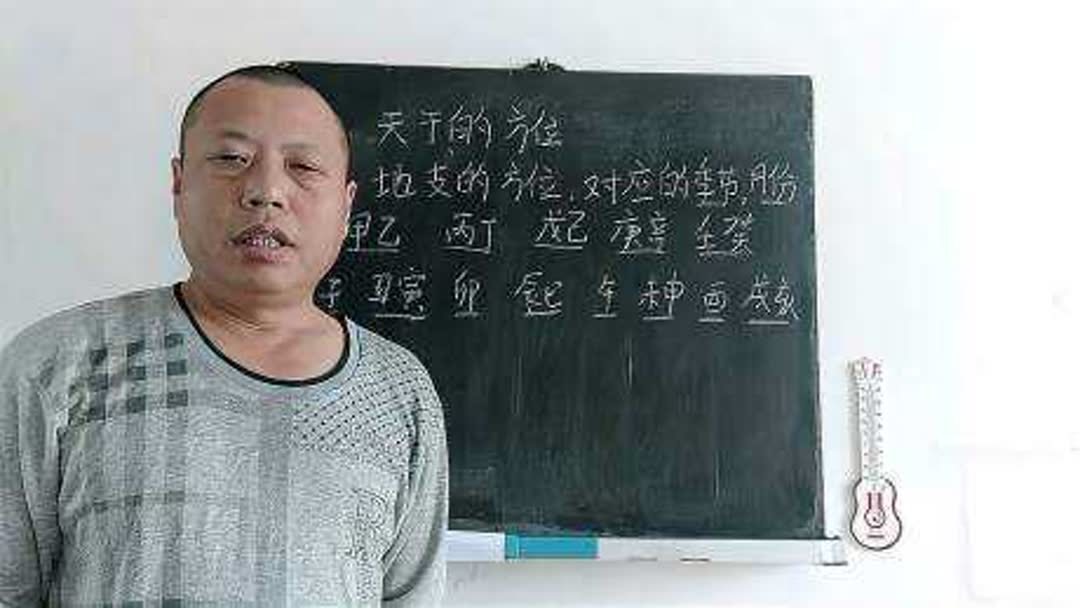 天干的方位
地支的方位,对应的季节,月份
甲乙 丙丁 戊己 庚辛 壬癸
子 丑寅 卯 辰巳 午 未申 酉 戌亥